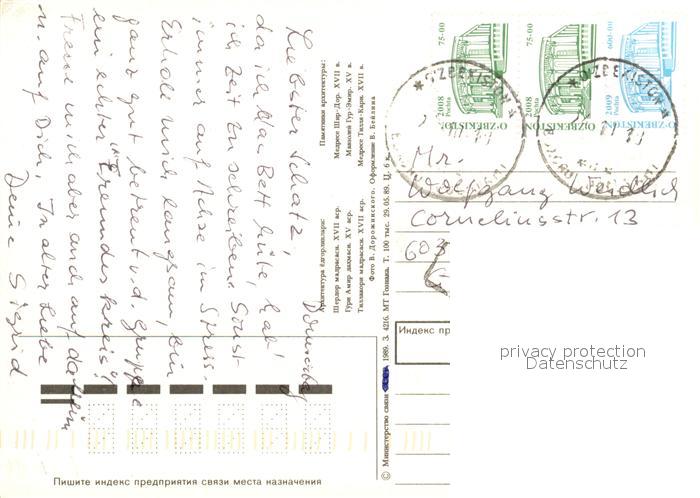 Liebster Schatz, Donnerstag
da ich das Bett hüte, hab'
ich Zeit zu schreiben. Sonst
immer auf Achse im Stress.
Erhole mich langsam, bin
ganz gut betreut v.d. Gruppe
ein echter "Freundeskreis"!
Freue mich aber auch auf daheim
u. auf Dich, In alter Liebe
Deine Sigrid
Архитектура ёдгорликлари:
Шердор мадрасаси. XVII аср.
Гури Амир даҳмаси. XV аср.
Тиллакори мадрасаси. XVII аср.
Памятники архитектуры:
Медресе Шир-Дор. XVII в.
Мавзолей Гур-Эмир. XV в.
Медресе Тилля-Кари. XVII в.
Фото В. Дорожинского. Оформление В. Бейлина
© Министерство связи 1989. З. 4216. МТ Гознака. Т. 100 тыс. 29.05.89. Ц. 6 к.
75-00
2008
Pochta
O'ZBEKISTON
75-00
2008
O'ZBEKISTON
600-00
2009
Pochta
O'ZBEKISTON
O'ZBEKISTON
O'ZBEKISTON
Mr.
Wolfgang Weidlich
Corneliusstr. 13
603
Индекс пр
privacy protection
Datenschutz
Пишите индекс предприятия связи места назначения